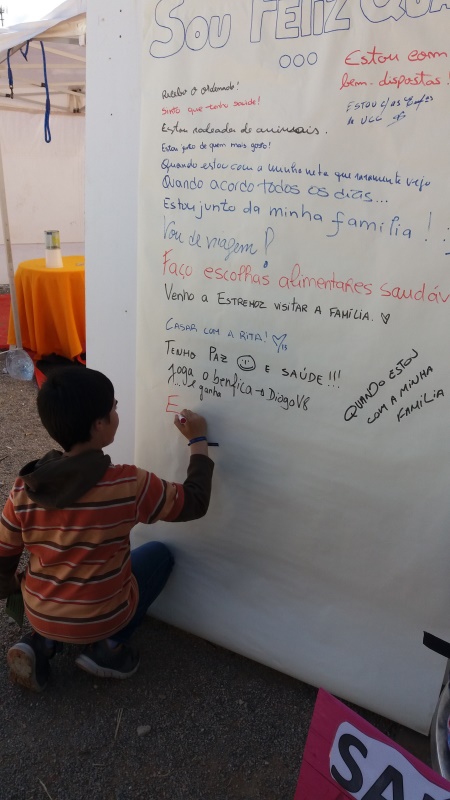 SOU FELIZ QUA
...
Receber o ordenado!
Sinto que tenho saúde!
Estou rodeada de animais.
Estou junto de quem mais gosto!
Quando estou com a minha neta que raramente vejo
Quando acordo todos os dias...
Estou junto da minha família!
Vou de viagem!
Faço escolhas alimentares saudáv
Venho a Estremoz visitar a família.
CASAR COM A RITA!
TENHO PAZ E SAÚDE!!!
Joga o benfica → Diogo V8
1... e ganha
E
Estou com
bem-dispostas!
ESTOU C/ AS
NA UCC
QUANDO ESTOU
COM A MINHA
FAMÍLIA
SA